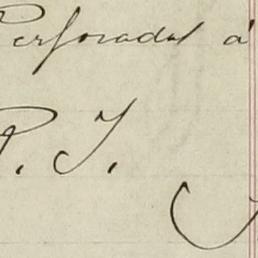 Perforadas á
P. J.